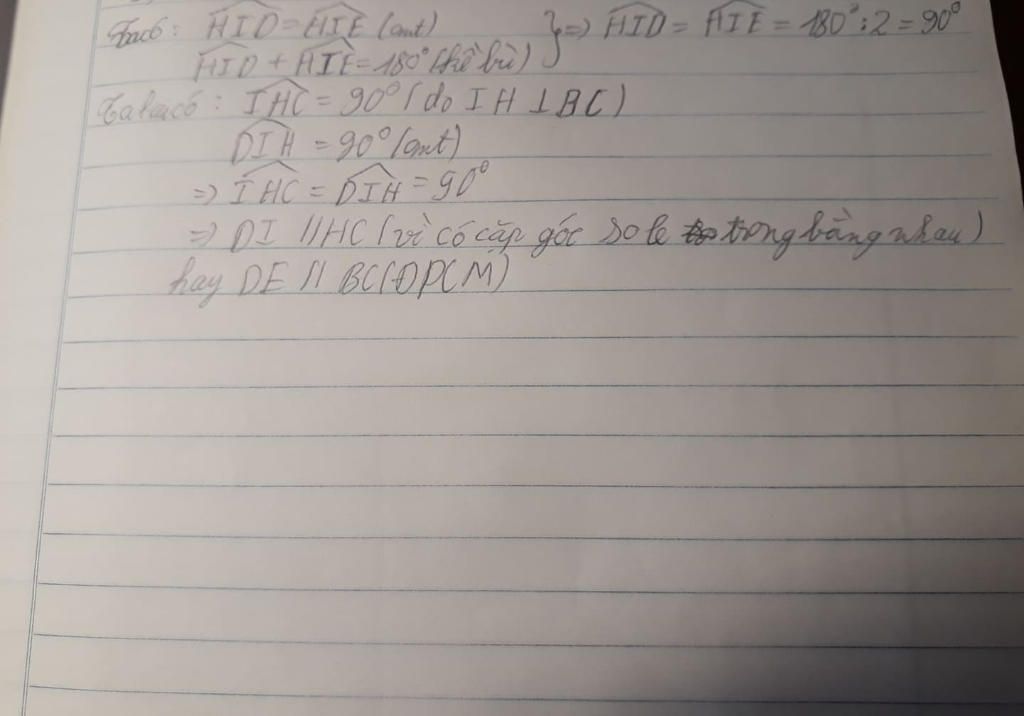 Ta có: HID = HIE (cmt) } => HID = HIE = 180° : 2 = 90°
HID + HIE = 180° (kề bù)
Ta lại có: IHC = 90° (do IH ⊥ BC)
DIH = 90° (cmt)
=> IHC = DIH = 90°
=> DI // HC (vì có cặp góc so le trong bằng nhau)
hay DE // BC (ĐPCM)